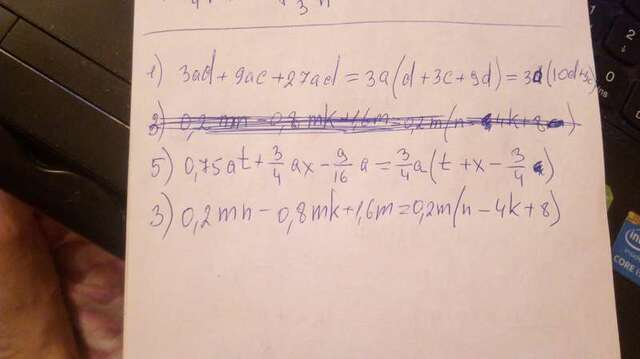 1) 3ad + 9ac + 27ad = 3a(d + 3c + 9d) = 3a(10d+3c)
3) 0,2mn - 0,8mk + 1,6m = 0,2m(n - 4k + 8)
5) 0,75at + 3/4 ax - 9/16 a = 3/4 a(t + x - 3/4)
3) 0,2mn - 0,8mk + 1,6m = 0,2m(n - 4k + 8)
2
0
ins
intel
CORE